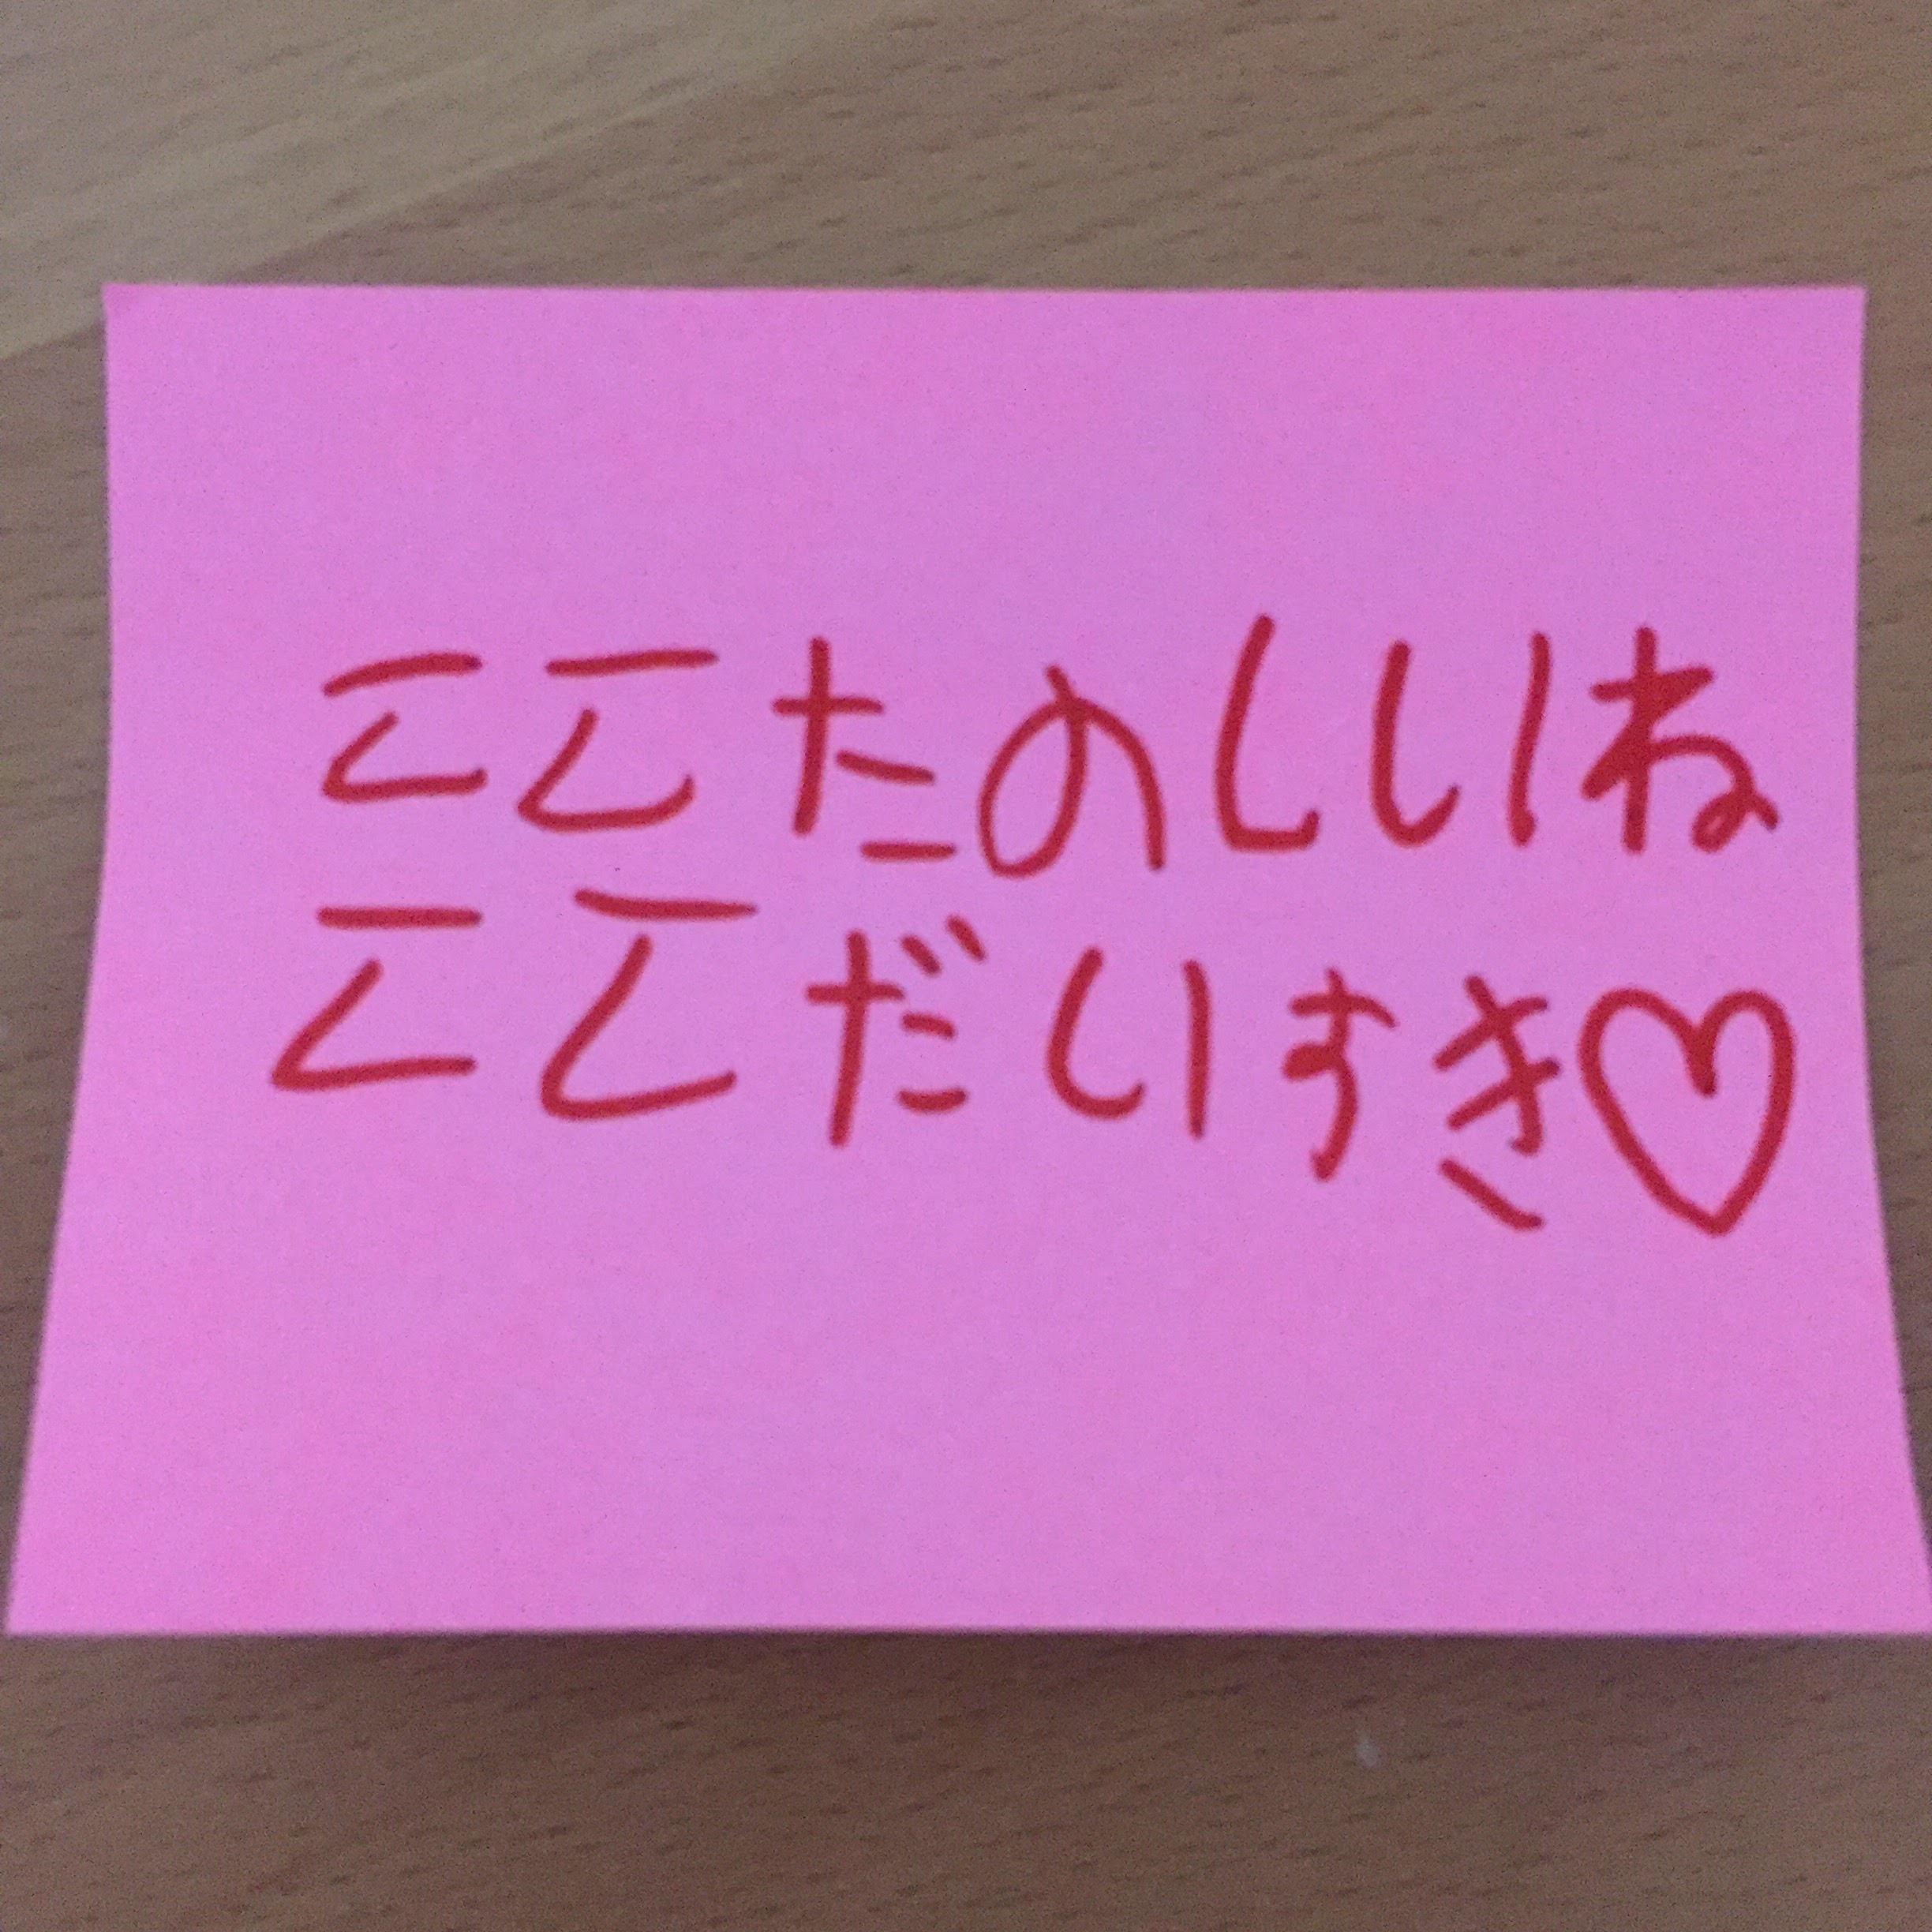 ここたのしいね
ここだいすき♡